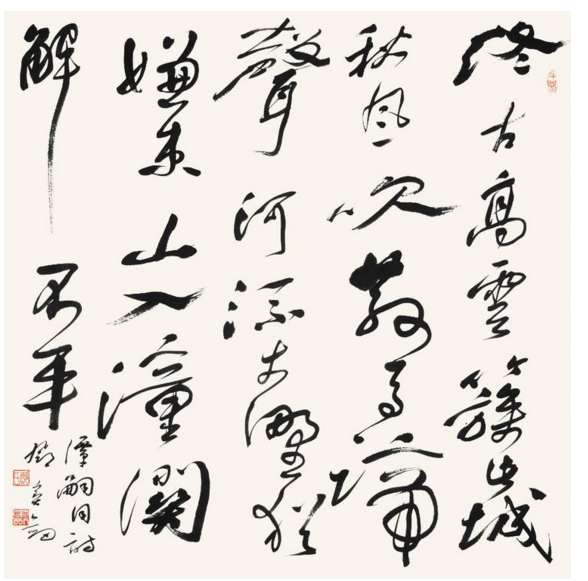 終古高雲簇此城
秋風吹散馬蹄
聲河流大野猶
嫌束山入潼關
解不平
譚嗣同詩